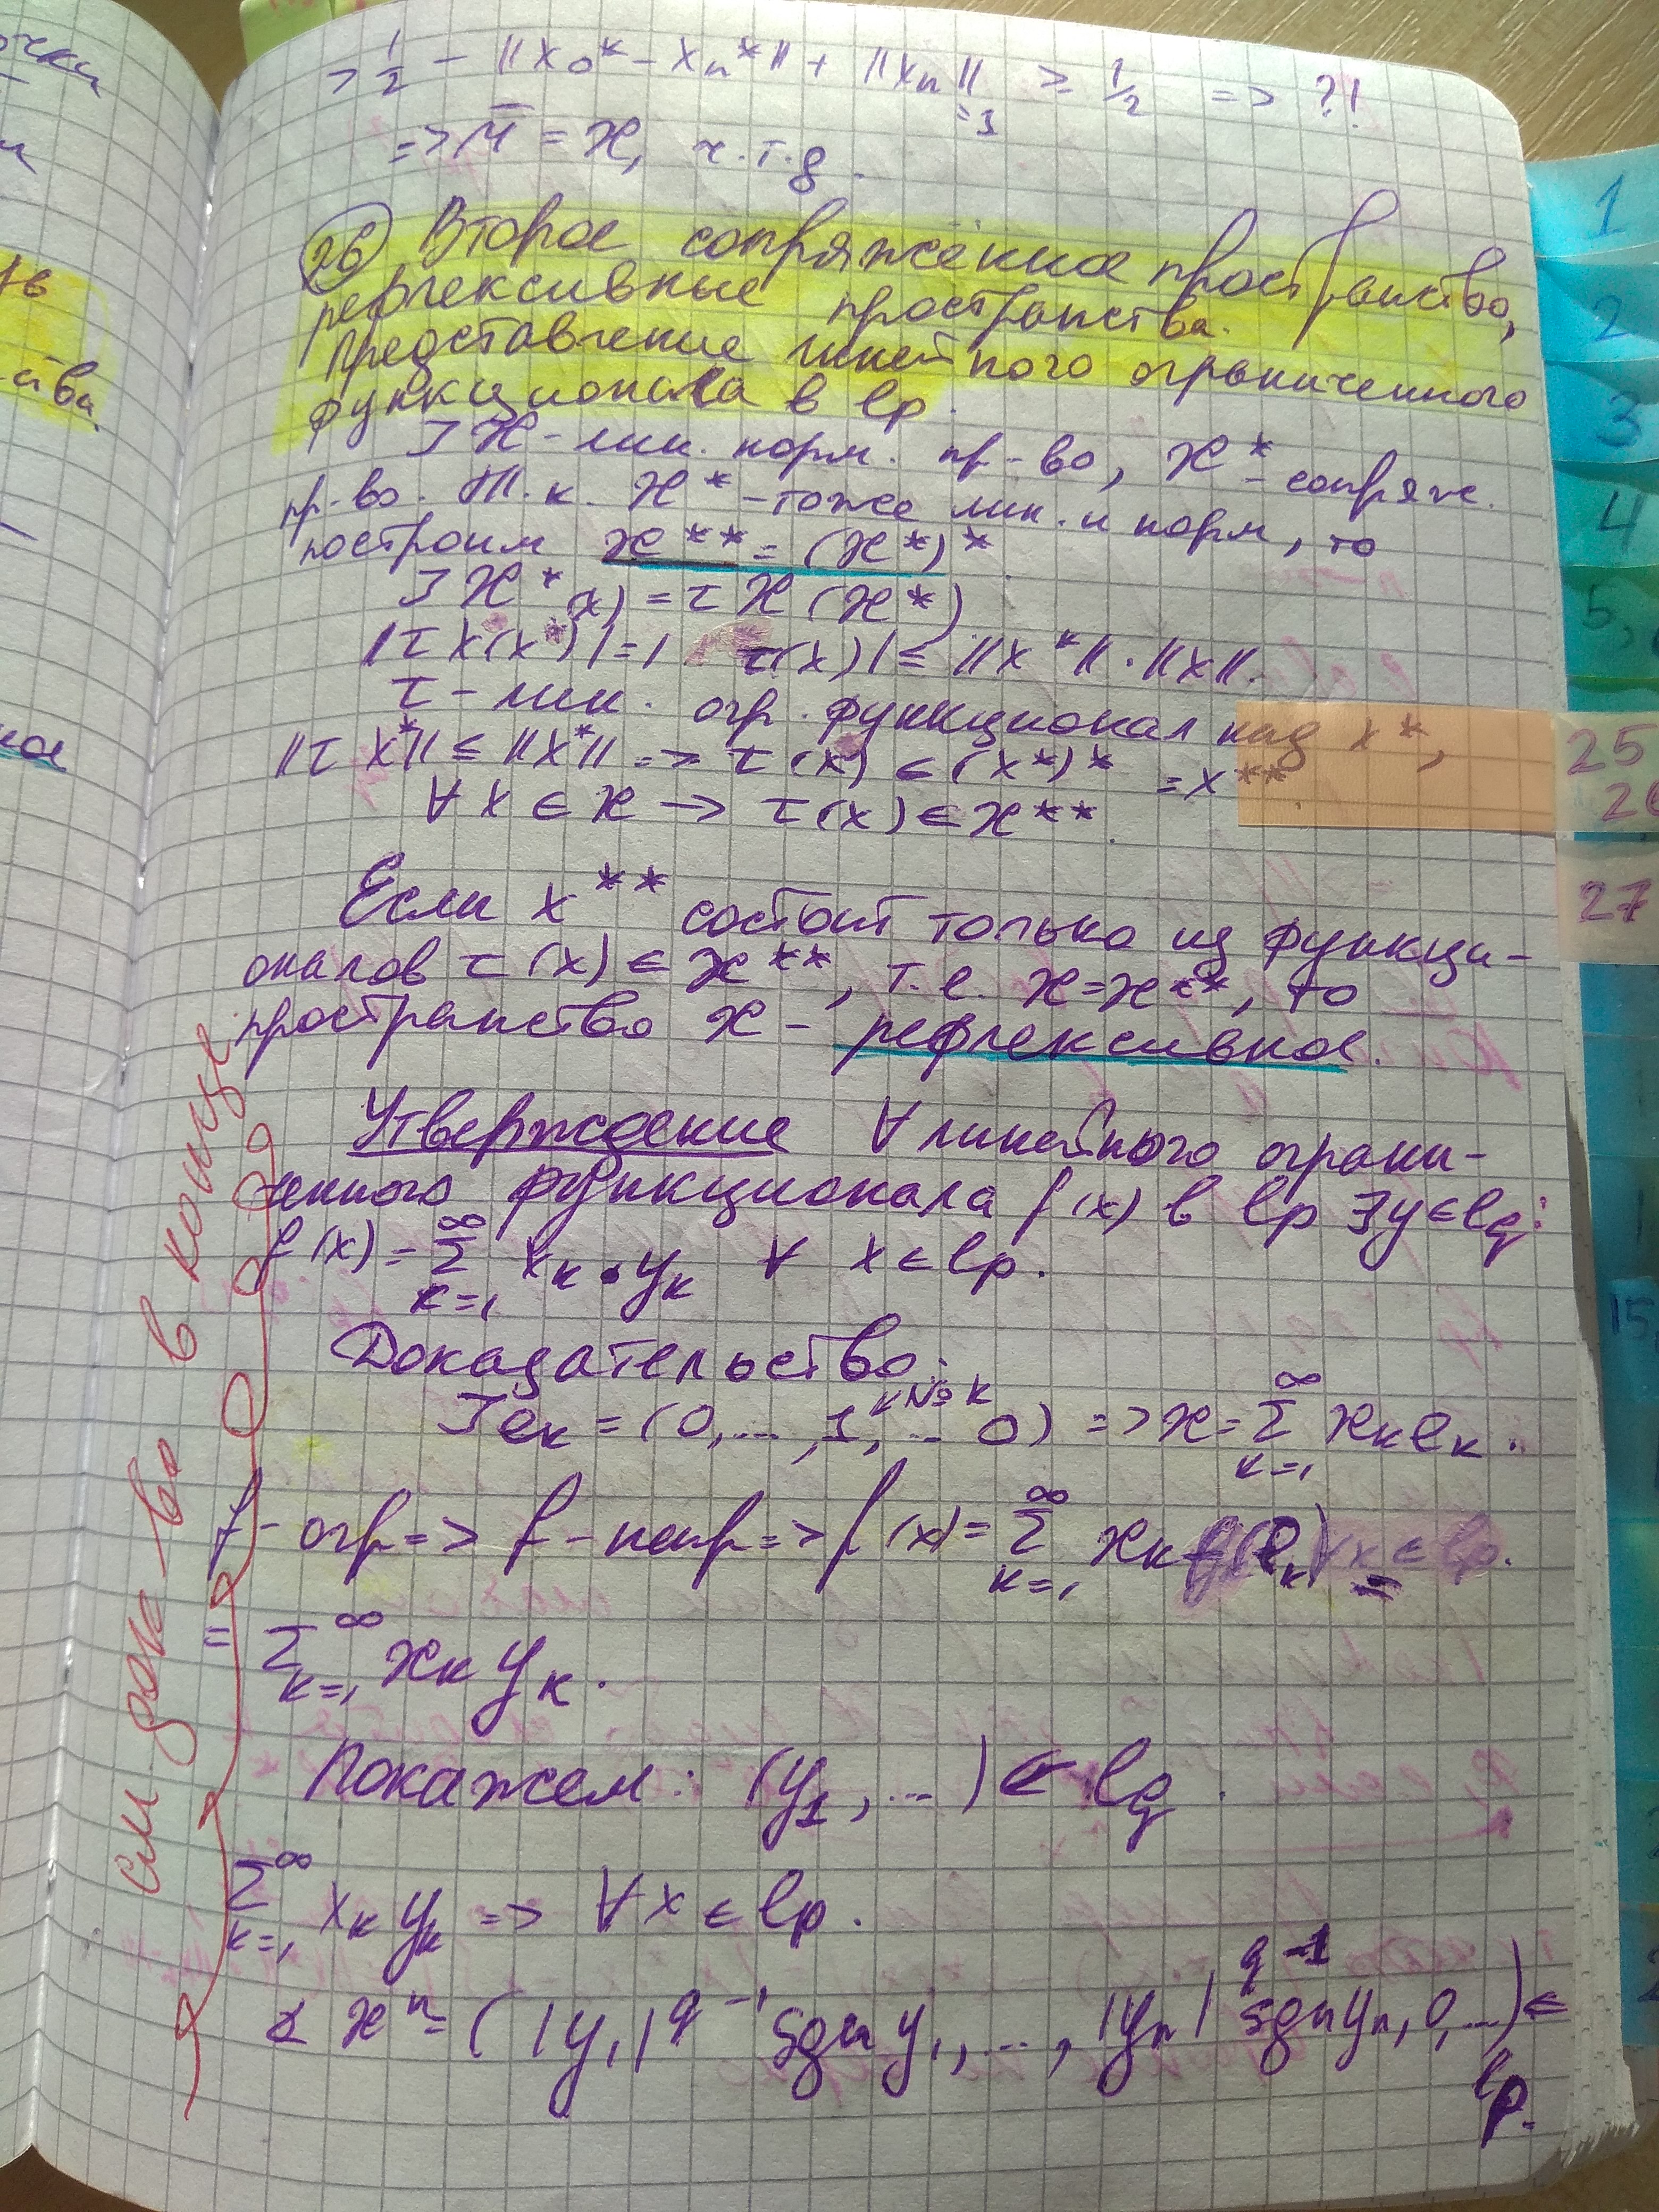 > 1/2 - ||x₀* - xₙ*|| + ||xₙ|| ≥ 1/2 => ?!
=1
=> M̅ = X, ч.т.д.
26 Второе сопряжённое пространство,
рефлексивные пространства.
Представление линейного ограниченного
функционала в lp.
] X - лин. норм. пр-во, X* - сопряж.
пр-во. Т.к. X* - тоже лин. и норм, то
построим X** = (X*)*
] X*(x) = τ X (X*)
|τ x(x*)| = | τ(x)| ≤ ||x*|| · ||x||.
τ - лин. огр. функционал над x*,
||τ x*|| ≤ ||x*|| => τ(x) ∈ (x*)* = x**
∀ x ∈ X → τ(x) ∈ X**.
Если x** состоит только из функци-
оналов τ(x) ∈ X**, т.е. X = X**, то
пространство X - рефлексивное.
Утверждение ∀ линейного ограни-
ченного функционала f(x) в lp ∃y∈lq:
f(x) = ∑_{k=1}^∞ xₖ · yₖ ∀ x ∈ lp.
Доказательство:
] eₖ = (0,...,1,^{↙№ k} ... 0) => x = ∑_{k=1}^∞ xₖeₖ.
f - огр => f - непр => f(x) = ∑_{k=1}^∞ xₖ f(eₖ) ∀x ∈ lp.
= ∑_{k=1}^∞ xₖ yₖ.
Покажем: (y₁, ...) ∈ lq.
∑_{k=1}^∞ xₖ yₖ => ∀x ∈ lp.
& xⁿ = (|y₁|^{q-1} sgn y₁, ..., |yₙ|^{q-1} sgn yₙ, 0, ...) ∈
lp.
см док-во в конце
1
2
3
4
5,
25
26
27
15,